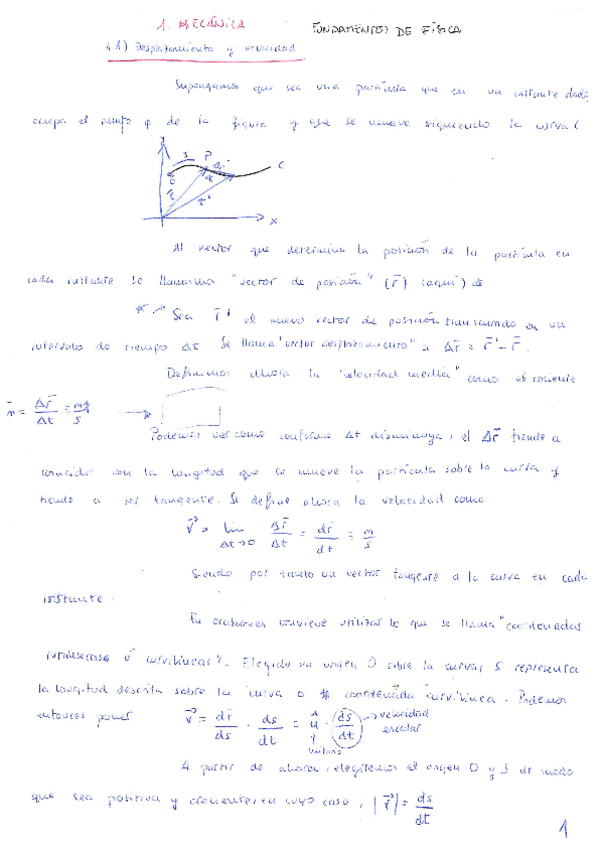 1. MECÁNICA FUNDAMENTOS DE FÍSICA
1.1) Desplazamiento y velocidad
Supongamos que sea una partícula que en un instante dado
ocupa el punto P de la figura y que se mueve siguiendo la curva C
y
S P Δr C
O
r r'
x
Al vector que determina la posición de la partícula en
cada instante lo llamamos "vector de posición" (r⃗) (aquí)
Sea r⃗' el nuevo vector de posición transcurrido en un
intervalo de tiempo Δt Se llama "vector desplazamiento" a Δr⃗ = r⃗' - r⃗.
Definimos ahora la "velocidad media" como el cociente
= Δr⃗/Δt = m/s →
Podemos ver como conforme Δt disminuya, el Δr⃗ tiende a
coincidir con la longitud que se mueve la partícula sobre la curva y
tiende a ser tangente. Se define ahora la velocidad como
v⃗ = lim Δt→0 Δr⃗/Δt = dr⃗/dt = m/s
Siendo por tanto un vector tangente a la curva en cada
instante.
En ocasiones conviene utilizar lo que se llama "coordenadas
intrínsecas ó curvilíneas". Elegido un origen O sobre la curva, S representa
la longitud descrita sobre la curva o coordenada curvilínea. Podemos
entonces poner v⃗ = dr⃗/ds · ds/dt = û · ds/dt → velocidad escalar
unitario
A partir de ahora, elegiremos el origen O y S de modo
que sea positiva y creciente, en cuyo caso, |v⃗| = ds/dt
1